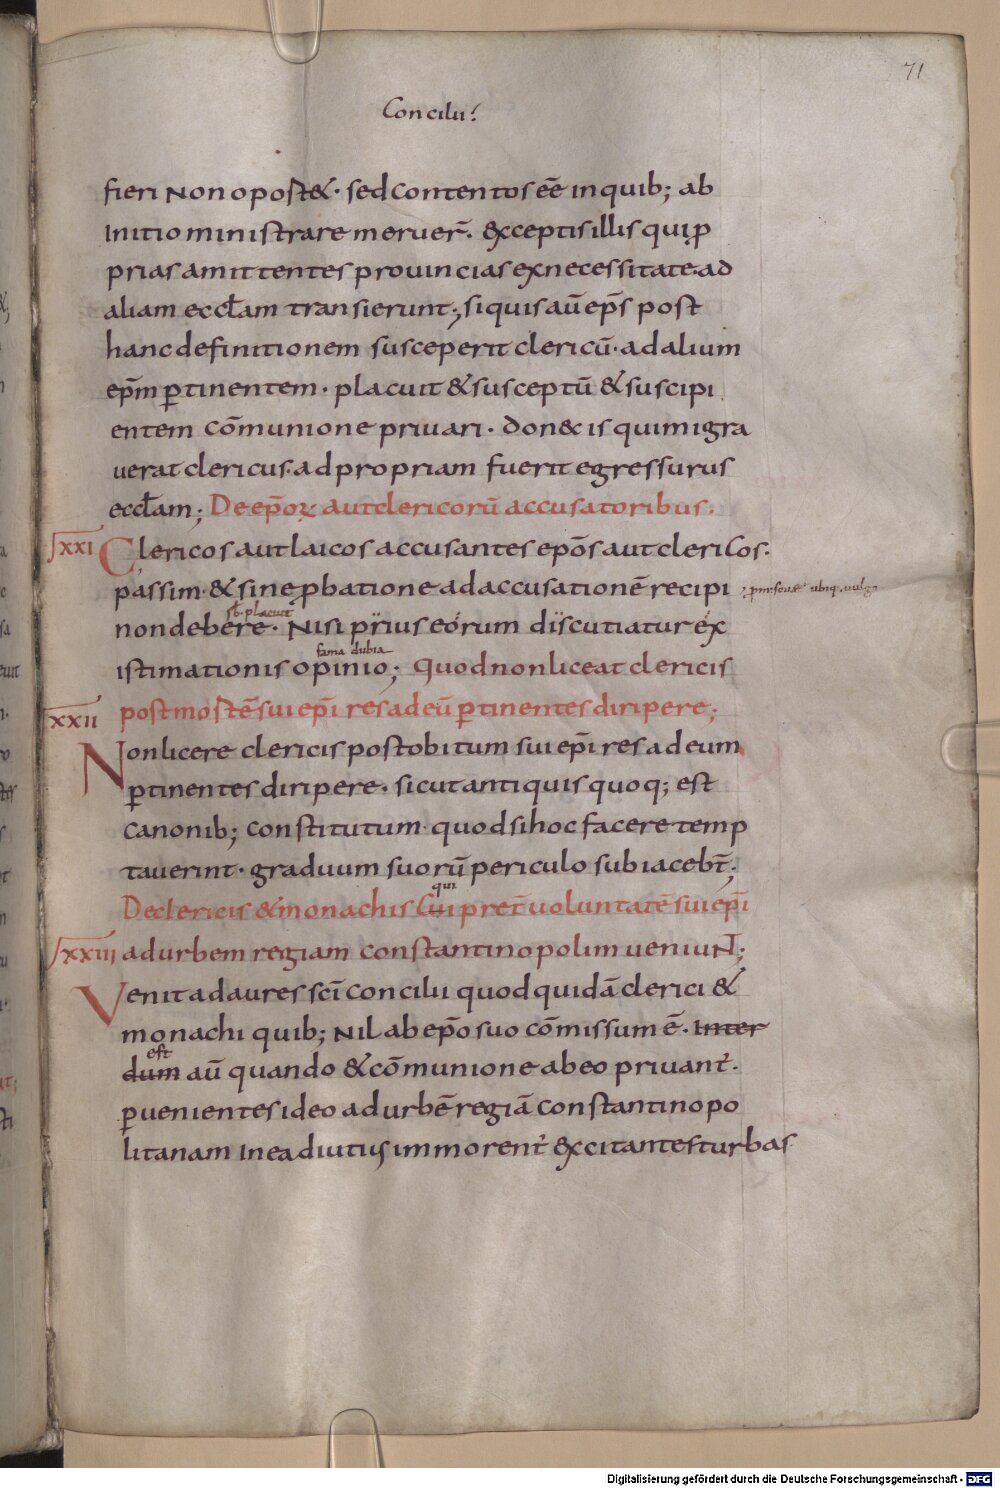 71
Concilii
fieri non oport&· sed contentos eē in quib; ab
initio ministrare meruer̄· exceptis illis qui p̱
prias amittentes prouincias ex necessitate ad
aliam eccl̄am transierunt; si quis aū ep̄s post
hanc definitionem susceperit clericū· ad alium
ep̄m ꝑtinentem· placuit & susceptū & suscipi
entem cōmunione priuari· don& is qui migra
uerat clericus· ad propriam fuerit egressurus
eccl̄am; De ep̄oꝝ aut clericorū accusatoribus·
XXI Clericos aut laicos accusantes ep̄os aut clericos·
passim· & sine ꝓbatione ad accusationē recipi
non debere· Nisi prius eorum discutiatur ex
fama dubia
istimationis opinio; Quod non liceat clericis
XXII post mortē sui ep̄i res ad eū ꝑtinentes diripere;
Non licere clericis post obitum sui ep̄i res ad eum
ꝑtinentes diripere· sicut antiquis quoq; est
canonib; constitutum· quod si hoc facere temp
tauerint· graduum suorū periculo subiacebt̄;
qui
De clericis & monachis Cui pret̄ uoluntatē sui ep̄i
XXIII ad urbem regiam constantinopolim ueniunt;
Venit ad aures sc̄i concilii quod quidā clerici &
monachi quib; nil ab ep̄o suo cōmissum ē· Inter
est
dum aū quando & cōmunione ab eo priuant̄·
ꝑuenientes ideo ad urbē regiā constantinopo
litanam in ea diutius immorent̄ excitantes turbas